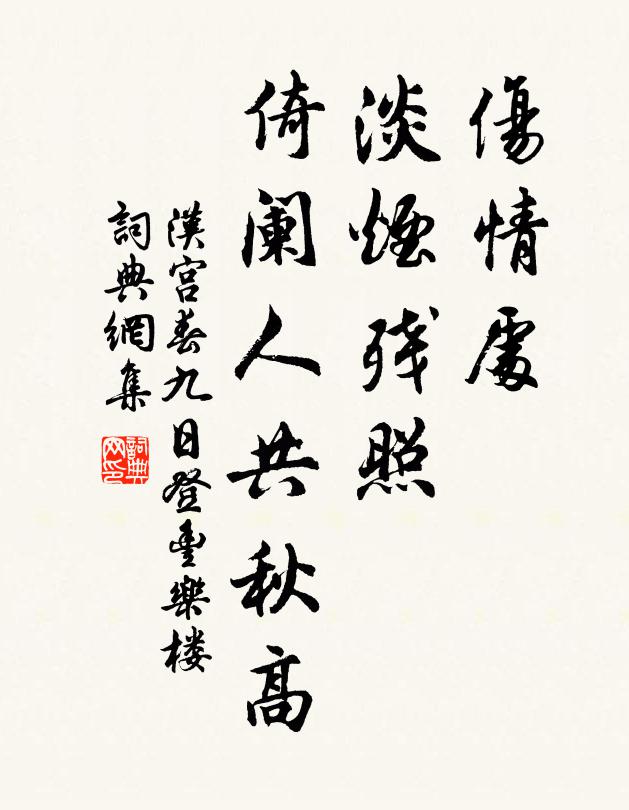 傷情處
淡煙残照
倚闌人共秋高
漢宮春九日登豊樂楼
詞典網集
詞典
网印